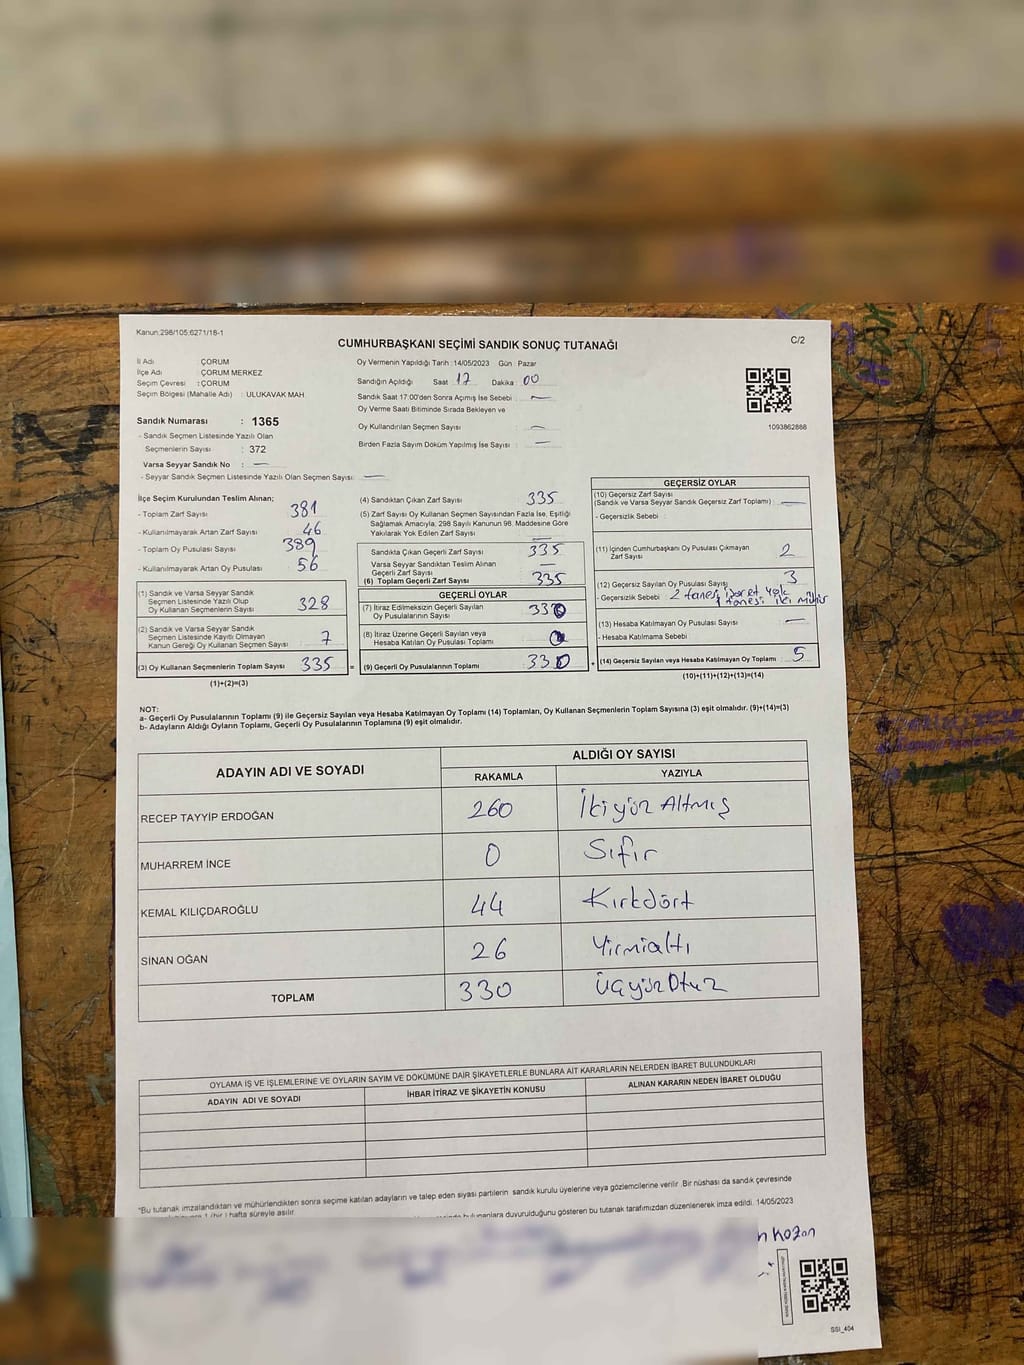 Kanun:298/105;6271/18-1
CUMHURBAŞKANI SEÇİMİ SANDIK SONUÇ TUTANAĞI
C/2
İl Adı : ÇORUM
İlçe Adı : ÇORUM MERKEZ
Seçim Çevresi : ÇORUM
Seçim Bölgesi (Mahalle Adı) : ULUKAVAK MAH
Oy Vermenin Yapıldığı Tarih : 14/05/2023 Gün : Pazar
Sandığın Açıldığı Saat 17 Dakika 00
Sandık Saat 17.00'den Sonra Açımış İse Sebebi : —
Oy Verme Saati Bitiminde Sırada Bekleyen ve
Oy Kullandırılan Seçmen Sayısı : —
Birden Fazla Sayım Döküm Yapılmış İse Sayısı : —
1093862888
Sandık Numarası : 1365
- Sandık Seçmen Listesinde Yazılı Olan
Seçmenlerin Sayısı : 372
Varsa Seyyar Sandık No : —
- Seyyar Sandık Seçmen Listesinde Yazılı Olan Seçmen Sayısı: —
İlçe Seçim Kurulundan Teslim Alınan;
- Toplam Zarf Sayısı 381
- Kullanılmayarak Artan Zarf Sayısı 46
- Toplam Oy Pusulası Sayısı 389
- Kullanılmayarak Artan Oy Pusulası 56
(1) Sandık ve Varsa Seyyar Sandık
Seçmen Listesinde Yazılı Olup
Oy Kullanan Seçmenlerin Sayısı 328
(2) Sandık ve Varsa Seyyar Sandık
Seçmen Listesinde Kayıtlı Olmayan
Kanun Gereği Oy Kullanan Seçmen Sayısı 7
(3) Oy Kullanan Seçmenlerin Toplam Sayısı 335 =
(1)+(2)=(3)
(4) Sandıktan Çıkan Zarf Sayısı 335
(5) Zarf Sayısı Oy Kullanan Seçmen Sayısından Fazla İse, Eşitliği
Sağlamak Amacıyla, 298 Sayılı Kanunun 98. Maddesine Göre
Yakılarak Yok Edilen Zarf Sayısı —
Sandıkta Çıkan Geçerli Zarf Sayısı 335
Varsa Seyyar Sandıktan Teslim Alınan
Geçerli Zarf Sayısı —
(6) Toplam Geçerli Zarf Sayısı 335
GEÇERLİ OYLAR
(7) İtiraz Edilmeksizin Geçerli Sayılan
Oy Pusulalarının Sayısı 330
(8) İtiraz Üzerine Geçerli Sayılan veya
Hesaba Katılan Oy Pusulası Toplamı 0
(9) Geçerli Oy Pusulalarının Toplamı 330 +
GEÇERSİZ OYLAR
(10) Geçersiz Zarf Sayısı
(Sandık ve Varsa Seyyar Sandık Geçersiz Zarf Toplamı) : —
- Geçersizlik Sebebi :
(11) İçinden Cumhurbaşkanı Oy Pusulası Çıkmayan
Zarf Sayısı 2
(12) Geçersiz Sayılan Oy Pusulası Sayısı 3
- Geçersizlik Sebebi : 2 tanesi işaret yok
1 tanesi iki mühür
(13) Hesaba Katılmayan Oy Pusulası Sayısı : —
- Hesaba Katılmama Sebebi
(14) Geçersiz Sayılan veya Hesaba Katılmayan Oy Toplamı 5
(10)+(11)+(12)+(13)=(14)
NOT:
a- Geçerli Oy Pusulalarının Toplamı (9) ile Geçersiz Sayılan veya Hesaba Katılmayan Oy Toplamı (14) Toplamları, Oy Kullanan Seçmenlerin Toplam Sayısına (3) eşit olmalıdır. (9)+(14)=(3)
b- Adayların Aldığı Oyların Toplamı, Geçerli Oy Pusulalarının Toplamına (9) eşit olmalıdır.
ADAYIN ADI VE SOYADI
ALDIĞI OY SAYISI
RAKAMLA YAZIYLA
RECEP TAYYİP ERDOĞAN 260 İkiyüz Altmış
MUHARREM İNCE 0 Sıfır
KEMAL KILIÇDAROĞLU 44 Kırkdört
SİNAN OĞAN 26 Yirmialtı
TOPLAM 330 üçyüz Otuz
OYLAMA İŞ VE İŞLEMLERİNE VE OYLARIN SAYIM VE DÖKÜMÜNE DAİR ŞİKAYETLERLE BUNLARA AİT KARARLARIN NELERDEN İBARET BULUNDUKLARI
ADAYIN ADI VE SOYADI İHBAR İTİRAZ VE ŞİKAYETİN KONUSU ALINAN KARARIN NEDEN İBARET OLDUĞU
"Bu tutanak imzalandıktan ve mühürlendikten sonra seçime katılan adayların ve talep eden siyasi partilerin sandık kurulu üyelerine veya gözlemcilerine verilir .Bir nüshası da sandık çevresinde
1 (bir ) hafta süreyle asılır. bulunanlara duyurulduğunu gösteren bu tutanak tarafımızdan düzenlenerek imza edildi. 14/05/2023
n Kozan
SSI_404